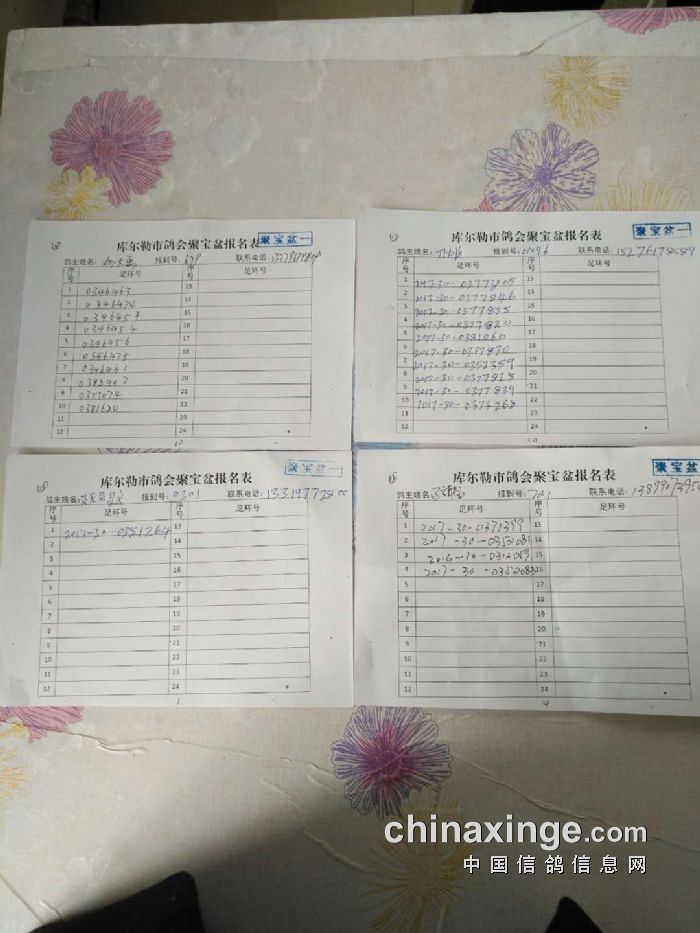 库尔勒市鸽会聚宝盆报名表 聚宝盆一
鸽主姓名: 报到号: 联系电话:
序号 足环号 序号 足环号
1 0346463 13
2 0346474 14
3 15
4 0346454 16
5 0346456 17
6 0346475 18
7 0346461 19
8 20
9 21
10 0381620 22
11 23
12 24
10
库尔勒市鸽会聚宝盆报名表 聚宝盆一
鸽主姓名: 报到号: 联系电话:
序号 足环号 序号 足环号
1 2017-30-0377805 13
2 2017-30-0377846 14
3 2017-30-0377835 15
4 16
5 2017-30-0381060 17
6 2017-30-0377872 18
7 2017-30-0352359 19
8 2017-30-0377818 20
9 2017-30-0377839 21
10 2017-30-0373268 22
11 23
12 24
10
库尔勒市鸽会聚宝盆报名表 聚宝盆一
鸽主姓名: 报到号: 0301 联系电话:
序号 足环号 序号 足环号
1 2017-30-0381264 13
2 14
3 15
4 16
5 17
6 18
7 19
8 20
9 21
10 22
11 23
12 24
1
库尔勒市鸽会聚宝盆报名表 聚宝盆
鸽主姓名: 报到号: 联系电话:
序号 足环号 序号 足环号
1 2017-30-0371399 13
2 2017-30-0352081 14
3 15
4 2017-30-0352083 16
5 17
6 18
7 19
8 20
9 21
10 22
11 23
12 24
4
chinaxinge.com
中国信鸽信息网